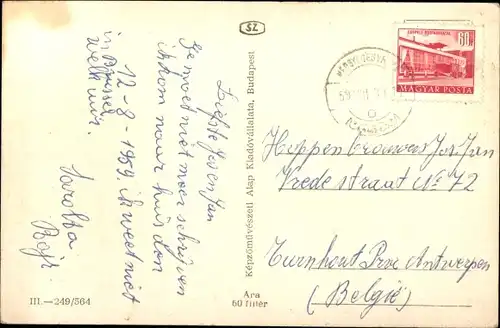 SZ
60f
MAGYAR POSTA
Liefste Jos en Jan
Je moet niet meer schrijven
ik kom naar huis den
12-8-1959. ik weet niet
in Brussel
welk uur.
Sarolta
Képzőművészeti Alap Kiadóvállalata, Budapest
Hoppenbrouwers Jos Jan
Vrede straat No 72
Turnhout Prv. Antwerpen
(België)
III.—249/564
Ára
60 fillér